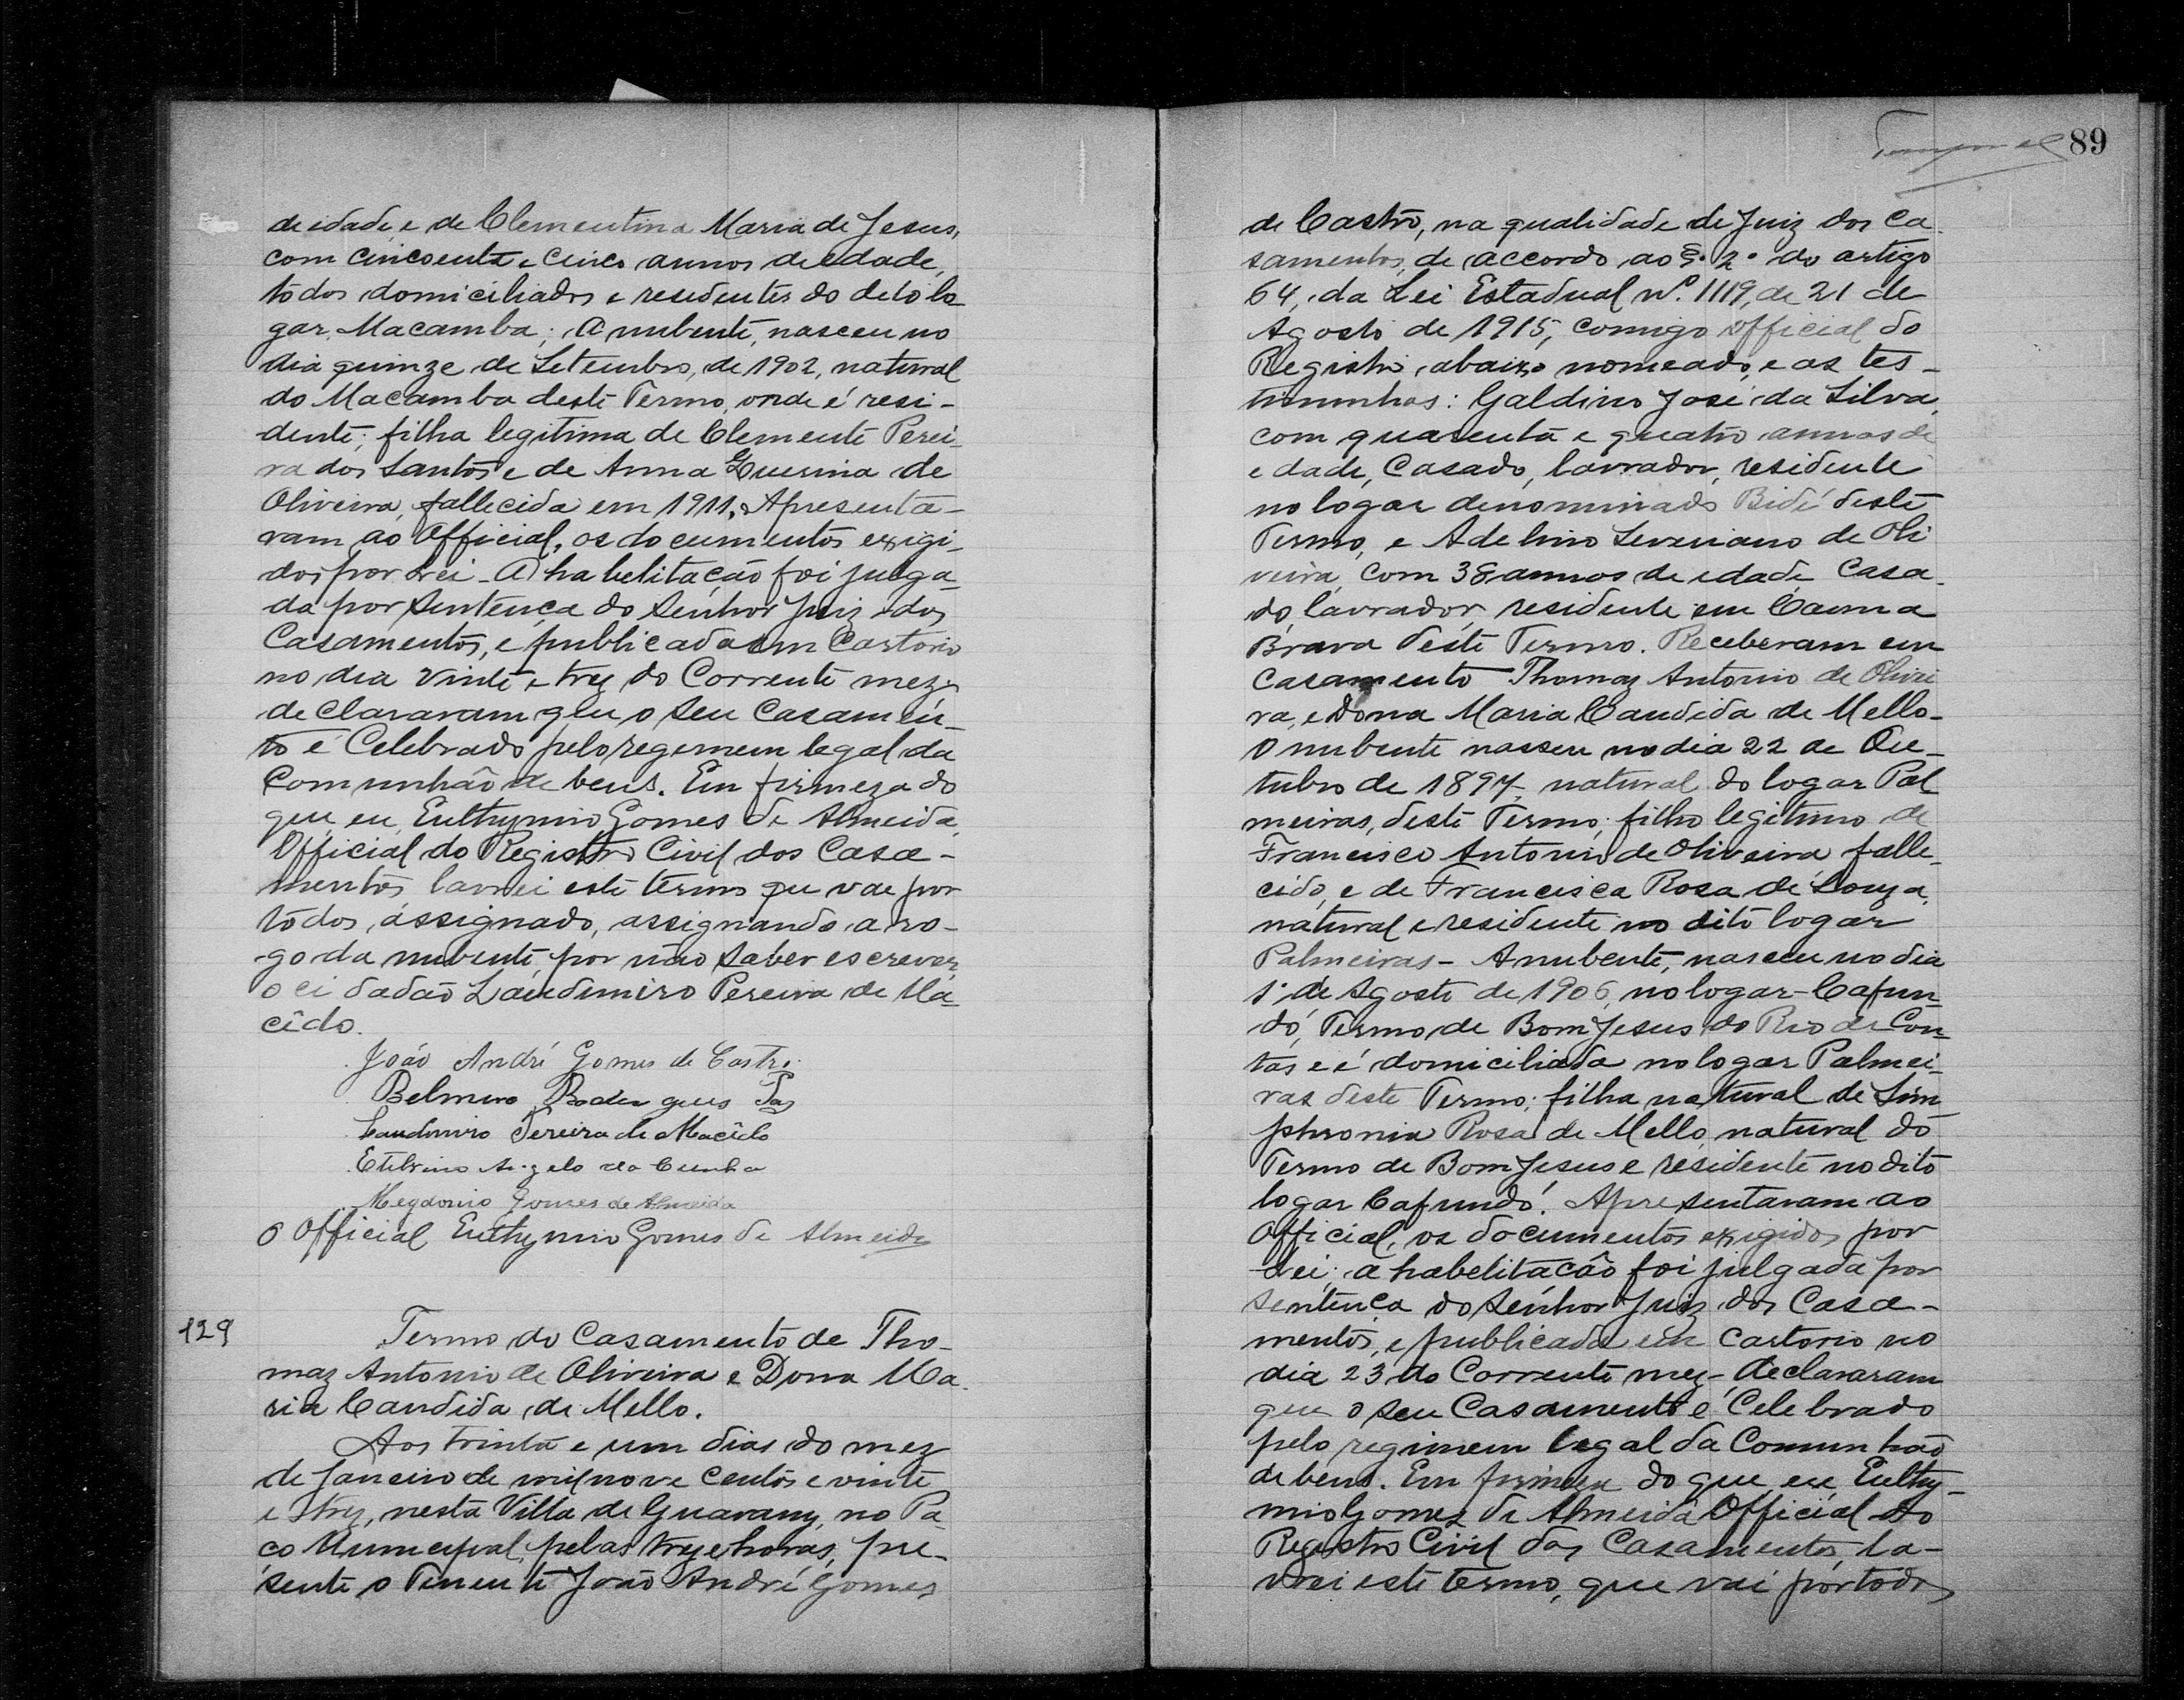 de idade, e de Clementina Maria de Jesus,
com cincoenta e cinco annos de edade,
todos domiciliados e residentes do dito lo
gar Macamba; A nubente, nasceu no
dia quinze de Setembro, de 1902, natural
do Macamba deste Termo, onde é resi-
dente; filha legitima de Clemente Perei-
ra dos Santos e de Anna Guerina de
Oliveira, fallecida em 1911. Apresenta-
ram ao Official, os documentos exigi-
dos por Lei - A habelitação foi julga-
da por Sentença do Senhor Juiz dos
Casamentos, e publicada em Cartorio
no dia vinte e trez do Corrente mez,
declararam que o seu Casamen-
to é Celebrado pelo regemem legal da
Communhão de bens. Em firmeza do
que, eu, Euthymio Gomes de Almeida,
Official do Registro Civil dos Casa-
mentos lavrei este termo que vae por
todos assignado, assignando a ro-
go da nubente, por não saber escrever,
o cidadão Laudimiro Pereira de Ma-
cêdo.
João André Gomes de Castro.
Belmiro Rodrigues Paz
Laudimiro Pereira de Macêdo
Etelvino Angelo da Cunha
Megdonio Gomes de Almeida
O Official Euthymio Gomes de Almeida
129
Termo do Casamento de Tho-
maz Antonio de Oliveira e Dona Ma-
ria Candida de Mello.
Aos trinta e um dias do mez
de Janeiro de mil nove centos e vinte
e trez, nesta Villa de Guarany, no Pa-
ço Municipal, pelas treze horas, pre-
sente o Tenente João André Gomes
89
de Castro, na qualidade de Juiz dos Ca-
samentos, de accordo ao §. 2º do artigo
64, da Lei Estadual Nº. 1119, de 21 de
Agosto de 1915, comigo official do
Registro, abaixo nomeado, e as tes-
timunhas: Galdino José da Silva,
com quarenta e quatro annos de
edade, Casado, lavrador, residente
no logar denominado Bidé deste
Termo, e Adelino Severiano de Oli
veira, com 38 annos de edade Casa-
do, lavrador, residente em Canna
Brava deste Termo. Receberam em
Casamento Thomaz Antonio de Olivei
ra, e Dona Maria Candida de Mello-
O nubente nasseu no dia 22 de Ou-
tubro de 1897, natural do logar Pal-
meiras, deste Termo; filho legitimo de
Francisco Antonio de Oliveira falle-
cido, e de Francisca Rosa de Souza,
natural e residente no dito logar
Palmeiras - A nubente, nasceu no dia
1º de Agosto de 1906, no logar - Cafun-
dó, Termo de Bom Jesus do Rio de Con-
tas e é domiciliada no logar Palmei-
ras deste Termo; filha natural de Sim
phronia Rosa de Mello, natural do
Termo de Bom Jesus e residente no dito
logar Cafundó. Apresentaram ao
Official, os documentos exigidos por
Lei; a habelitacão foi julgada por
Sentença do Senhor Juiz dos Casa-
mentos, e publicada em Cartorio no
dia 23 do Corrente mez - declararam
que o seu Casamento é Celebrado
pelo regimem legal da Comunhão
de bens. Em firmeza do que, eu, Euthy-
mio Gomes de Almeida Official do
Registro Civil dos Casamentos, la-
vrei este termo, que vai por todos